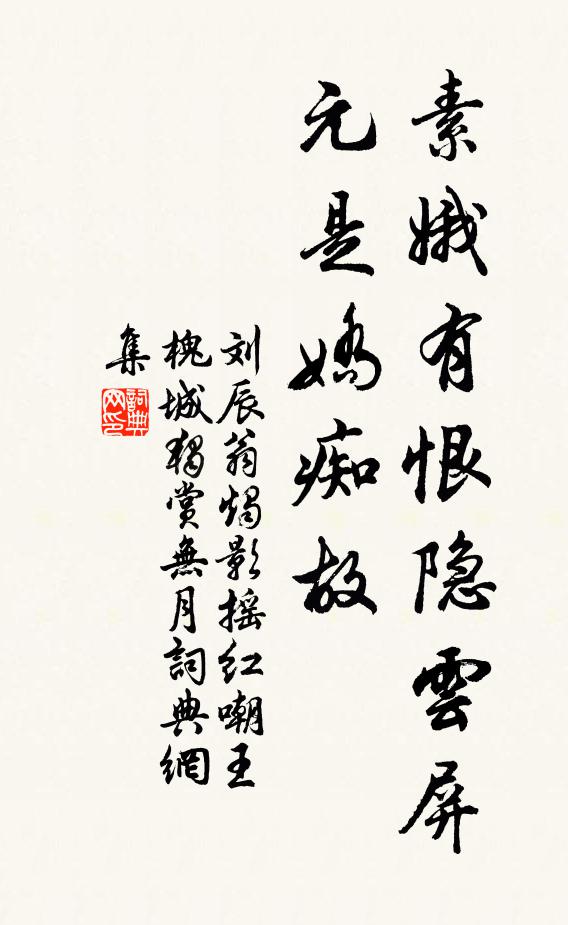 素娥有恨隐雲屏
元是嬌痴故
刘辰翁燭影摇红嘲王
槐城獨賞無月詞典網
集
詞典网印